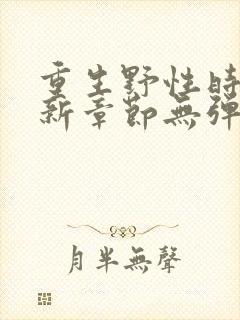 重生野性時
新章節無彈
月半無聲